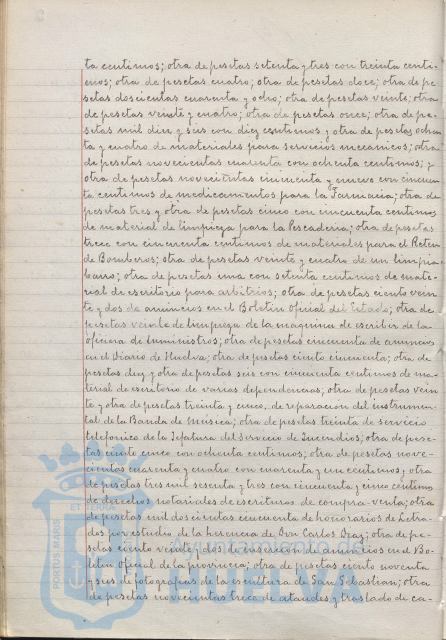 ta centimos; otra de pesetas setenta y tres con treinta centi-
mos; otra de pesetas cuatro; otra de pesetas doce; otra de pe-
setas doscientas cuarenta y ocho; otra de pesetas veinte; otra
de pesetas veinte y cuatro; otra de pesetas once; otra de pe-
setas mil diez y seis con diez centimos y otra de pesetas ochen
ta y cuatro de materiales para servicios mecanicos; otra
de pesetas novecientas cuarenta con ochenta centimos; y
otra de pesetas novecientas cincuenta y nueve con cincuen
ta centimos de medicamentos para la Farmacia; otra de
pesetas tres y otra de pesetas cinco con cincuenta centimos
de material de limpieza para la Pescaderia; otra de pesetas
trece con cincuenta centimos de materiales para el Reten
de Bomberos; otra de pesetas veinte y cuatro de un limpia-
barro; otra de pesetas una con setenta centimos de mate-
rial de escritorio para arbitrios; otra de pesetas ciento vein
te y dos de anuncios en el Boletin oficial del Estado; otra de
pesetas veinte de limpieza de la maquina de escribir de la
oficina de Suministros; otra de pesetas cincuenta de anuncios
en el Diario de Huelva; otra de pesetas ciento cincuenta; otra de
pesetas diez y otra de pesetas seis con cincuenta centimos de ma-
terial de escritorio de varias dependencias; otra de pesetas vein
te y otra de pesetas treinta y cinco, de reparacion del instrumen-
tal de la Banda de Música; otra de pesetas treinta de servicio
telefonico de la Jefatura del servicio de Incendios; otra de pese-
tas ciento cinco con ochenta centimos; otra de pesetas nove-
cientas cuarenta y cuatro con cuarenta y un centimos, y otra
de pesetas tres mil sesenta y tres con cincuenta y cinco centimos
de derechos notariales de escrituras de compra-venta; otra
de pesetas mil doscientas cincuenta de honorarios de Letra-
dos por estudio de la herencia de Don Carlos Diaz; otra de pe-
setas ciento veinte y dos de insercion de anuncios en el Bo-
letin oficial de la provincia; otra de pesetas ciento noventa
y seis de fotografias de la escultura de San Sebastian; otra
de pesetas novecientas trece de ataudes y traslado de ca-
PORTUS MARIS
ET TERRÆ